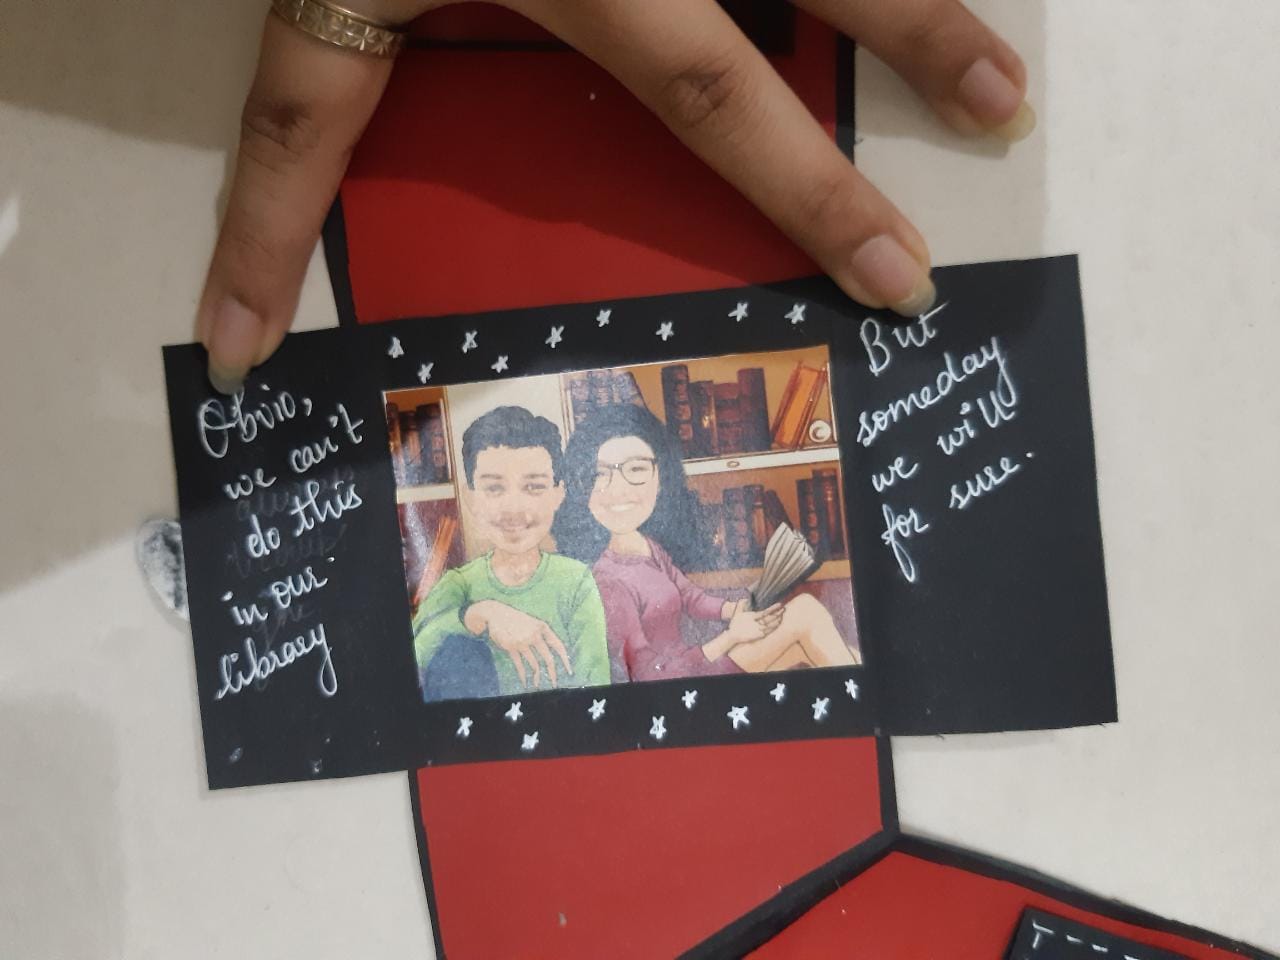 Obvio,
we can't
do this
in our
library
But
someday
we will
for sure.